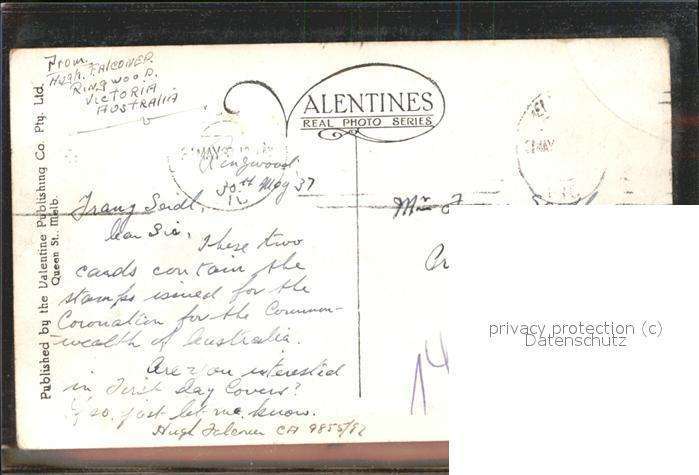 From.
Hugh. FALCONER.
RINGWOOD.
VICTORIA
AUSTRALIA
Published by the Valentine Publishing Co. Pty. Ltd.
Queen St., Melb.
VALENTINES
REAL PHOTO SERIES
MAY
MAY
Ringwood
30th May 37
Franz Seidl,
Dear Sir,
These two
cards contain the
stamps issued for the
Coronation for the Common-
wealth of Australia.
Are you interested
in First day Covers?
If so, just let me know.
Hugh Falconer CA 9855/82
privacy protection (c)
Datenschutz